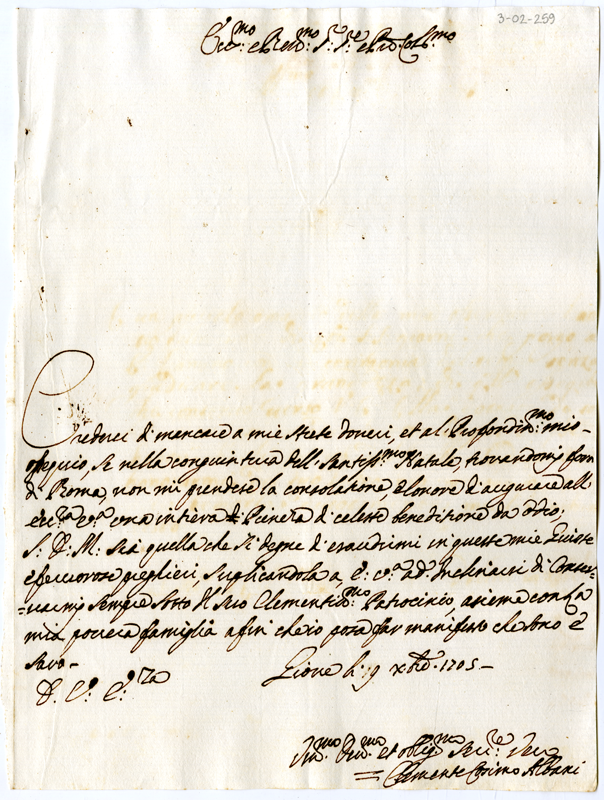 3-02-259
Ecc.mo e Rev.mo S.r S.re e Pro.n Col.mo
Crederei di mancare a miei strete doveri, et al Profondis.mo mio
osequio, se nella conguintura dell Santiss.mo Natale, trovandomi fori
di Roma, non mi prendese la consolatione, e l'onore d'augurare all
ecc.za v.a una intiera di Pieneza di celeste beneditione da Idio;
S. D. M. sia quella che si degne di esaudirmi in queste mie Giuste
e feruorose preghieri, suplicandola a E. V.a ad Inclinarsi di Conser-
=uarmi sempre sotto Il suo Clementis.mo Patrocinio, asieme con la
mia povera famiglia a fin che io posa far manifesto che sono e
saro-
D. V. E.za Lione li 9 xbre 1705-
Um.mo Dev.mo et oblig.mo Ser.re Vero
Clemente Cosimo Albani